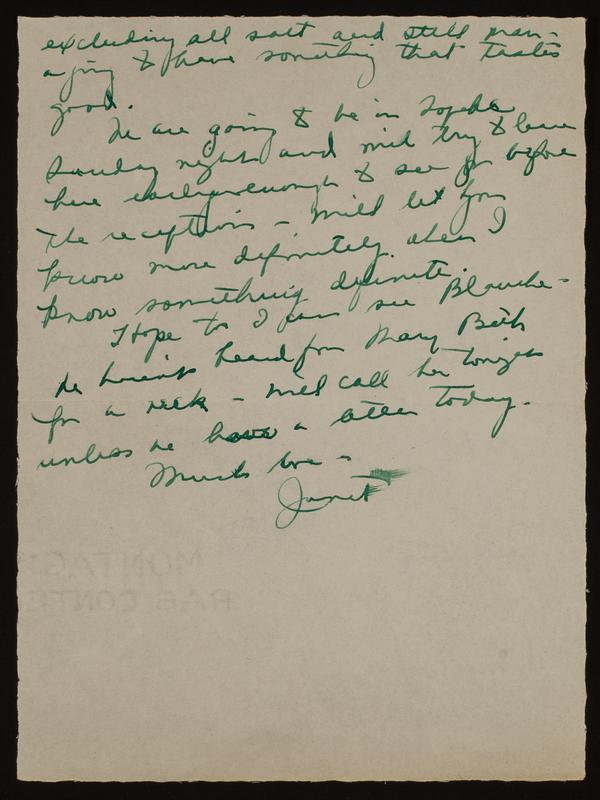 excluding all salt and still man-
aging to have something that tastes
good.
We are going to be in Topeka
Sunday night and will try to leave
here early enough to see you before
the reception - will let you
know more definitely when I
know something definite.
Hope to I can see Blanche -
We haven't heard from Mary Beth
for a week - will call her tonight
unless we have a letter today.
Much love -
Janet
MONTAG'
RAG CONTE